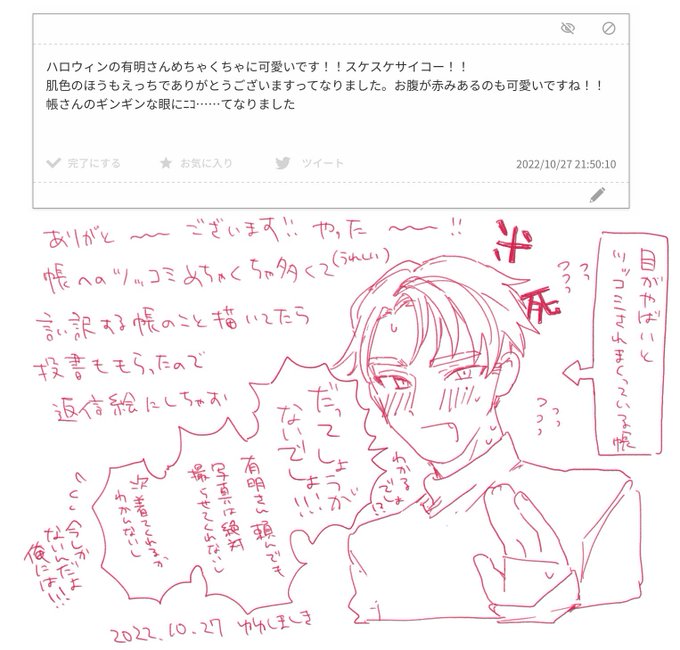 ハロウィンの有明さんめちゃくちゃに可愛いです！！スケスケサイコー！！
肌色のほうもえっちでありがとうございますってなりました。お腹が赤みあるのも可愛いですね！！
帳さんのギンギンな眼にﾆｺ……てなりました
完了にする
お気に入り
ツイート
2022/10/27 21:50:10
ありがと〜〜ございます!! やった〜〜!!
帳へのツッコミめちゃくちゃ多くて(うれしい)
言い訳する帳のこと描いてたら
投書ももらったので
返信絵にしちゃお
目がやばいと
ツッコミされまくっている帳
だってしょうが
ないでしょ!!!
わかるよ
でしょ!?
有明さん頼んでも
写真は絶対
撮らせてくれないし
次着てくれるか
わかんないし
今しか
ないんだよ
俺には!!!
2022.10.27